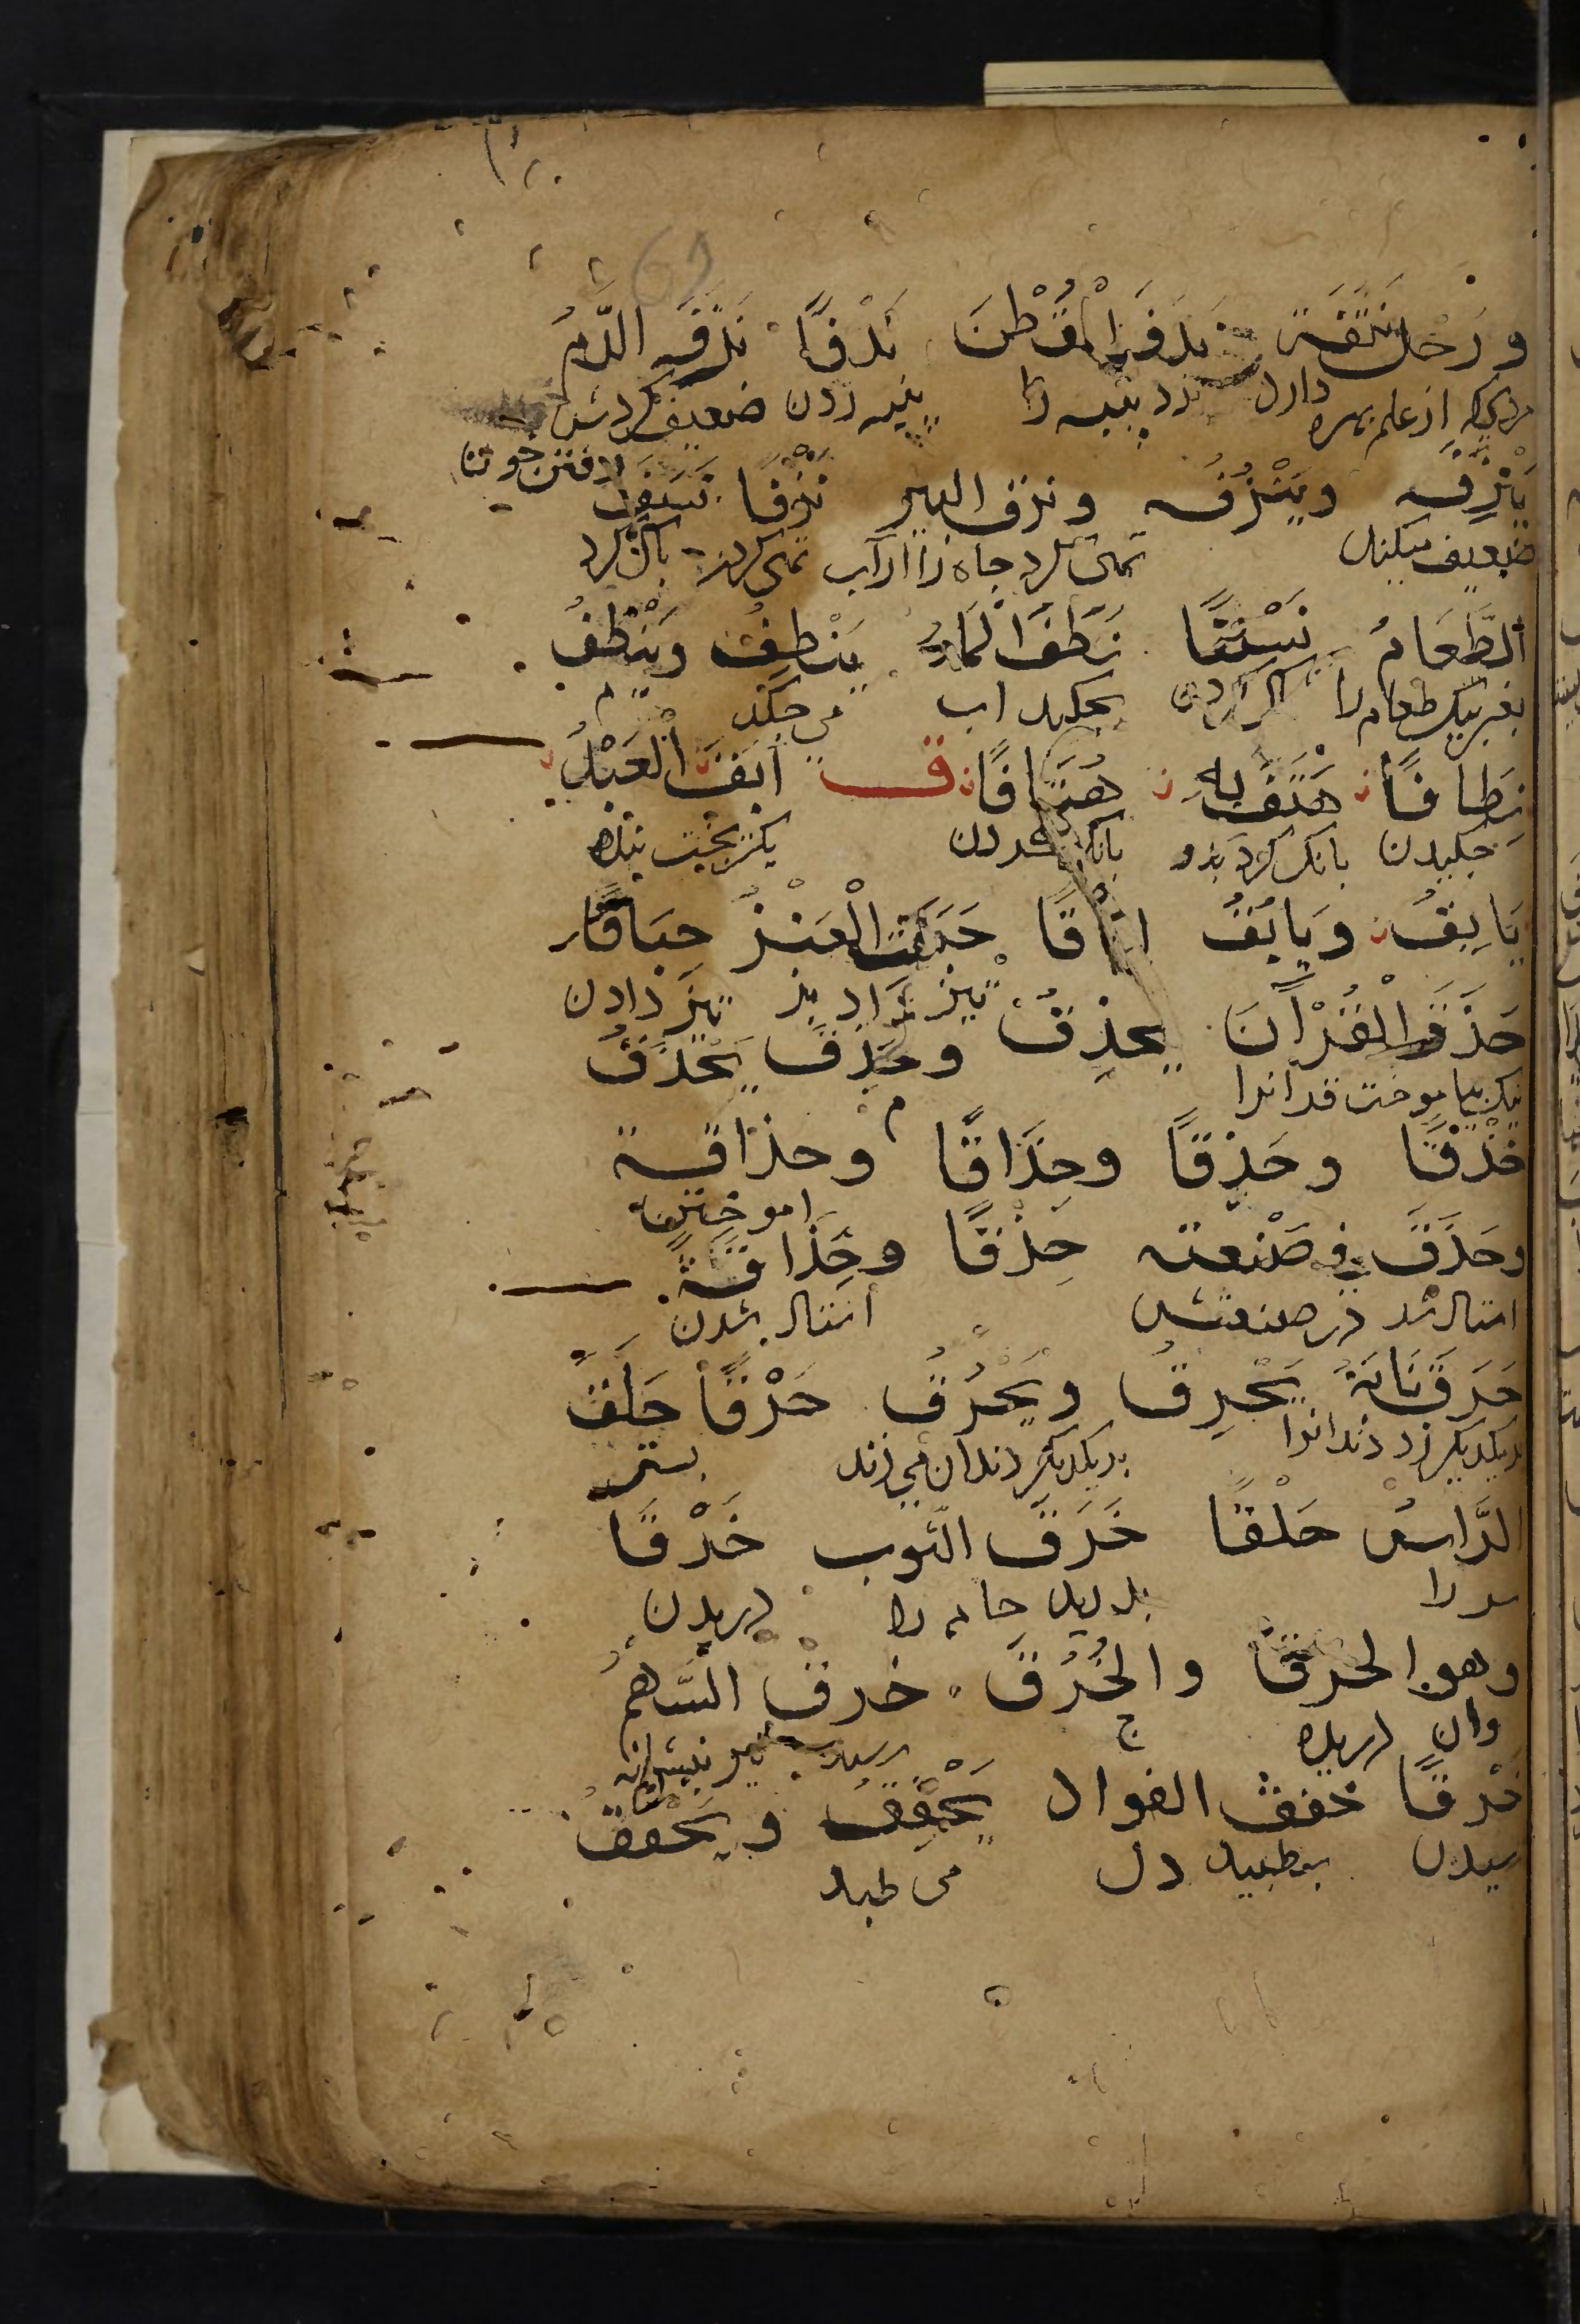 ورجل نتفة ندف القطن ندفًا نزفه الدم
مردیکه از علم بهره دارد بزد پنبه را پنبه زدن ضعیف کردش رفتن خون
يَنْزِفُه ويَنْزُفُه ونزف البير نزفًا نسف
ضعیف میکند تهی کرد چاه را از آب تهی کردن پاک کرد
الطَّعَامَ نَسْفًا نَطَفَ الْمَاءُ يَنْطِفُ وَيَنْطُفُ
بغربیل طعام را پاک کردن بچکید اب می چکد م
نِطَافًا هَتَفَ بِهِ هُتَافًا ق اَبَقَ الْعَبْدُ
چکیدن بانک کرد بدو بانک کردن بگریخت بنده
يَابِقُ وَيَابُقُ اِبَاقًا حَبَقَتِ الْعَنْزُ حِبَاقًا
تیز داد بز تیز دادن
حَذَقَ الْقُرْآنَ يحذِقُ وحَذِقَ يَحْذَقُ
نیک بیاموخت قرآنرا م
حَذْقًا وحِذْقًا وحِذَاقًا وحذاقة
اموختن
وحَذَقَ في صَنْعته حِذْقًا وحِذَاقَةً
استاد شد در صنعتش استاد شدن
حَرَقَ نَابَهُ يَحْرِقُ ويَحْرُقُ حَرْقًا حَلَقَ
بریکدیکر زد دندانرا بریکدیکر دندان می زند بسترد
الرَّاسَ حَلْقًا خَرَقَ الثوب خَرْقًا
سر را بدرید جامه را دریدن
وهو الخرق والخُرُقُ خزق السَّهمُ
وان دریده ج رسید تیر بنشانه
خَزْقًا خفق الفواد يَخْفِقُ ويَخْفُقُ
رسیدن بطپید دل می طپد